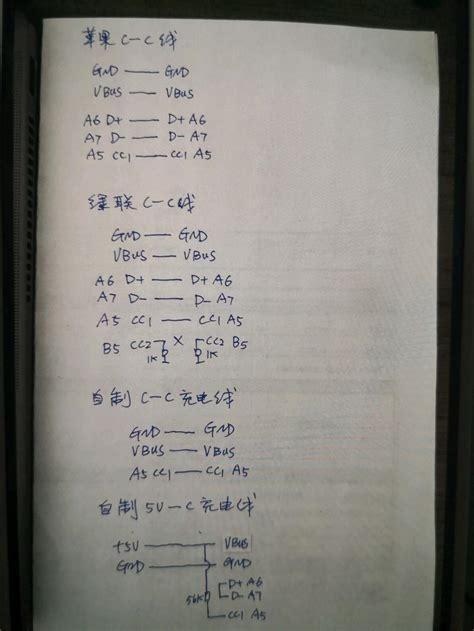 苹果 C-C线
GND — GND
VBUS — VBUS
A6 D+ — D+ A6
A7 D- — D- A7
A5 CC1 — CC1 A5
绿联 C-C线
GND — GND
VBUS — VBUS
A6 D+ — D+ A6
A7 D- — D- A7
A5 CC1 — CC1 A5
B5 CC2 X CC2 B5
1K 1K
自制 C-C 充电线
GND — GND
VBUS — VBUS
A5 CC1 — CC1 A5
自制 5V-C 充电线
+5V — VBUS
GND — GND
D+ A6
56K D- A7
CC1 A5